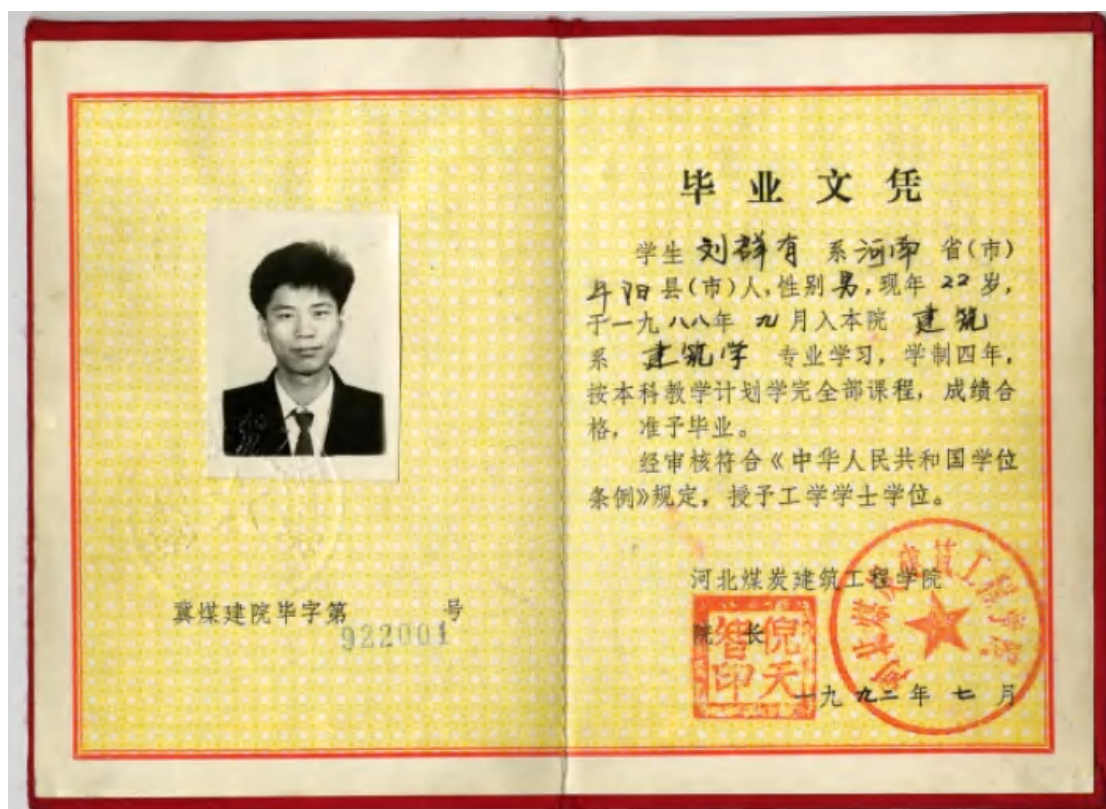 冀煤建院毕字第 号
922001
毕业文凭
学生 刘群有 系 河南 省(市)
丹阳县(市)人,性别男,现年 22 岁,
于一九八八年 九 月入本院 建筑
系 建筑学 专业学习,学制四年,
按本科教学计划学完全部课程,成绩合
格,准予毕业。
经审核符合《中华人民共和国学位
条例》规定,授予工学学士学位。
河北煤炭建筑工程学院
院 长
倪天智印
河北煤炭建筑工程学院
一九九二年 七 月